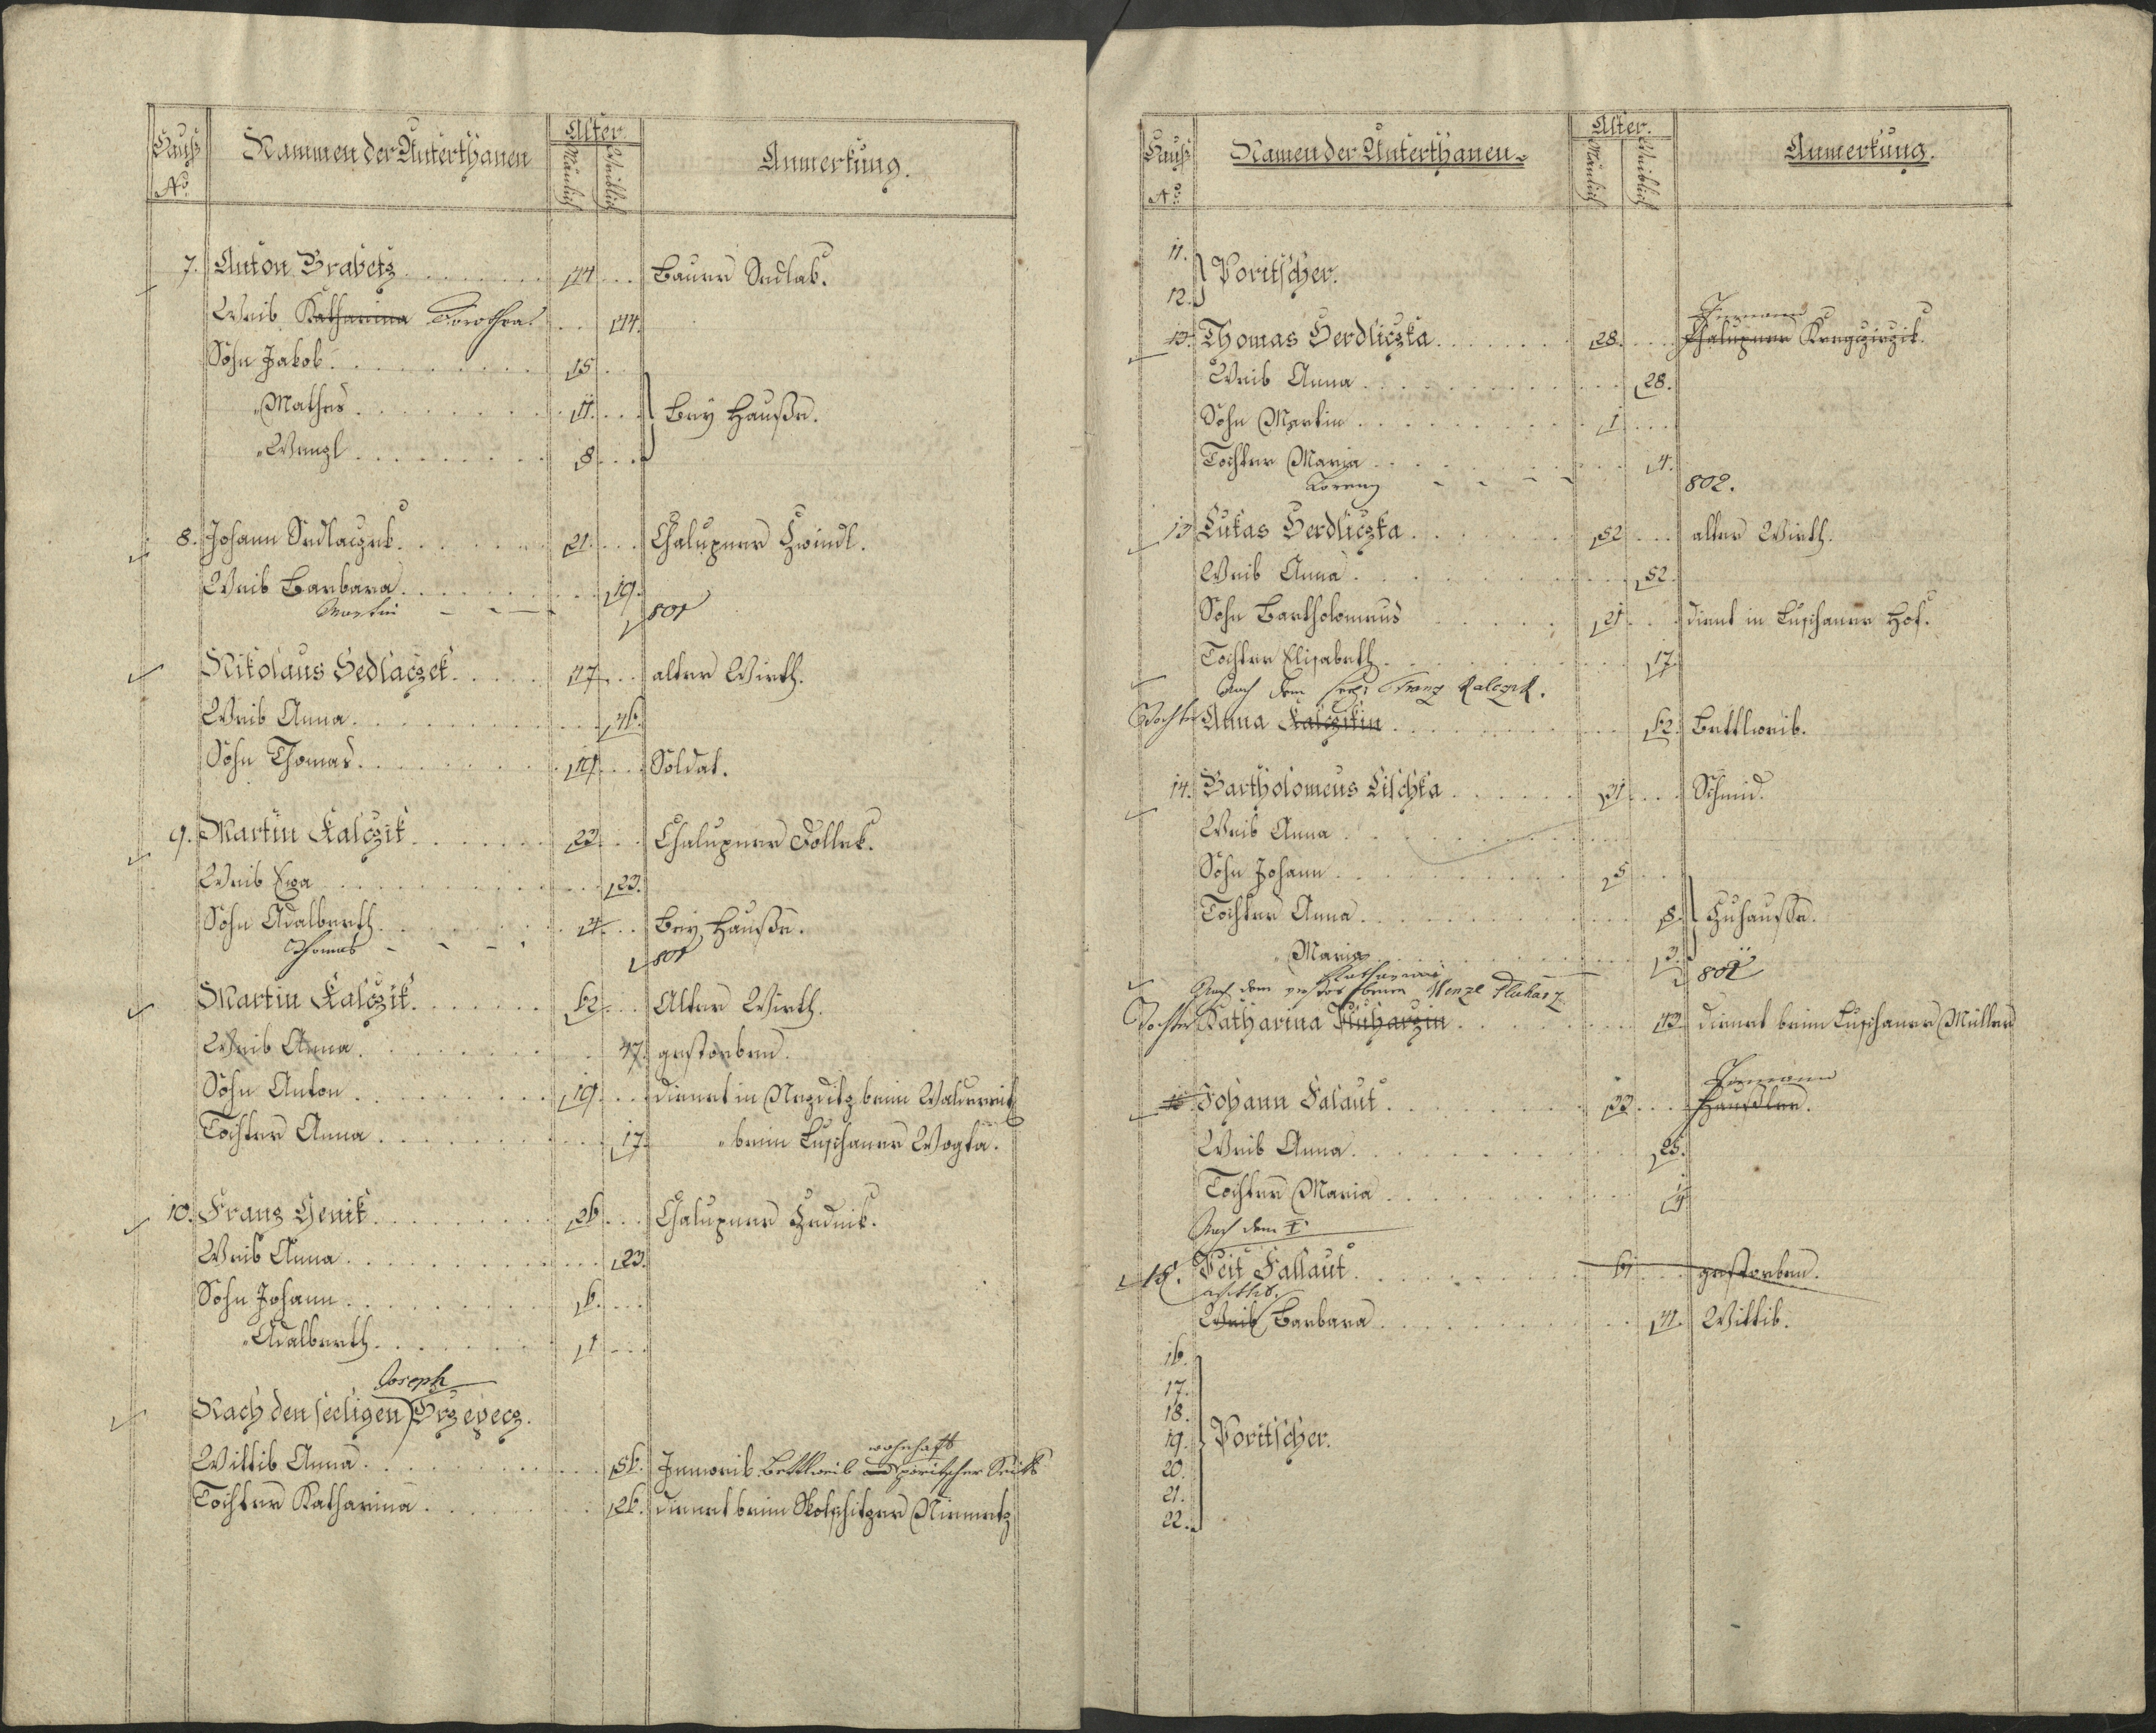 Hauß No. Nammen der Unterthanen Alter. Mänlich Weiblich Anmerkung.
7. Anton Brabetz 44 Bauer Sedlak.
Weib Katharina Dorothea 44.
Sohn Jakob 15
" Mathes 11. Bey Hauße.
" Wenzl 8
8. Johann Sedlaczek. 21. Chalupner Zwindl.
Weib Barbara 19.
Martin 801
Nikolaus Sedlaczek 47 alter Wirth.
Weib Anna 46.
Sohn Thomas 19 Soldat.
9. Martin Kalczik 23 Chalupner Dollek.
Weib Ewa 23.
Sohn Adalberth 4 Bey Hauße.
Thomas 801
Martin Kalczik 62 Alter Wirth.
Weib Anna 47. gestorben.
Sohn Anton 19 dienet in Nezditz beim
Tochter Anna 17. " beim Luschaner Wogta.
10. Franz Henik 26 Chalupner Hudnik.
Weib Anna 23.
Sohn Johann 6.
" Adalberth 1
Joseph
Nach den seeligen Brzepecz.
wohnhaft
Wittib Anna 56. Inweib Bettlweib poritscher Seits
Tochter Katharina 26. dienet beim
Hauß No. Namen der Unterthanen Alter. Mänlich Weiblich Anmerkung.
11.
12. Poritscher.
13. Thomas Herdliczka 28. Chalupner
Weib Anna 28.
Sohn Martin 1
Tochter Maria 4.
Lorenz 802.
13 Lukas Herdliczka 52 alter Wirth.
Weib Anna 52.
Sohn Bartholomeus 21 dient in Luschaner Hof.
Tochter Elisabeth 17.
Nach dem seel: Franz Kalczik.
Tochter Anna Kalczikin 62. Bettlweib.
14. Bartholomeus Lischka 31 Schmid.
Weib Anna
Sohn Johann 5
Tochter Anna 8. Zuhauße.
" Maria 3.
Katharina 801
Nach dem Wenzl Pluharz
Tochter Katharina Pluharzin 43. dienet beim Luschaner Müller
15 Johann Falaut 33 Häusler.
Weib Anna 25.
Tochter Maria 4
Nach dem †
15. Veit Fallaut 61 gestorben.
Wittib.
Weib Barbara 41. Wittib.
16.
17.
18.
19. Poritscher.
20.
21.
22.